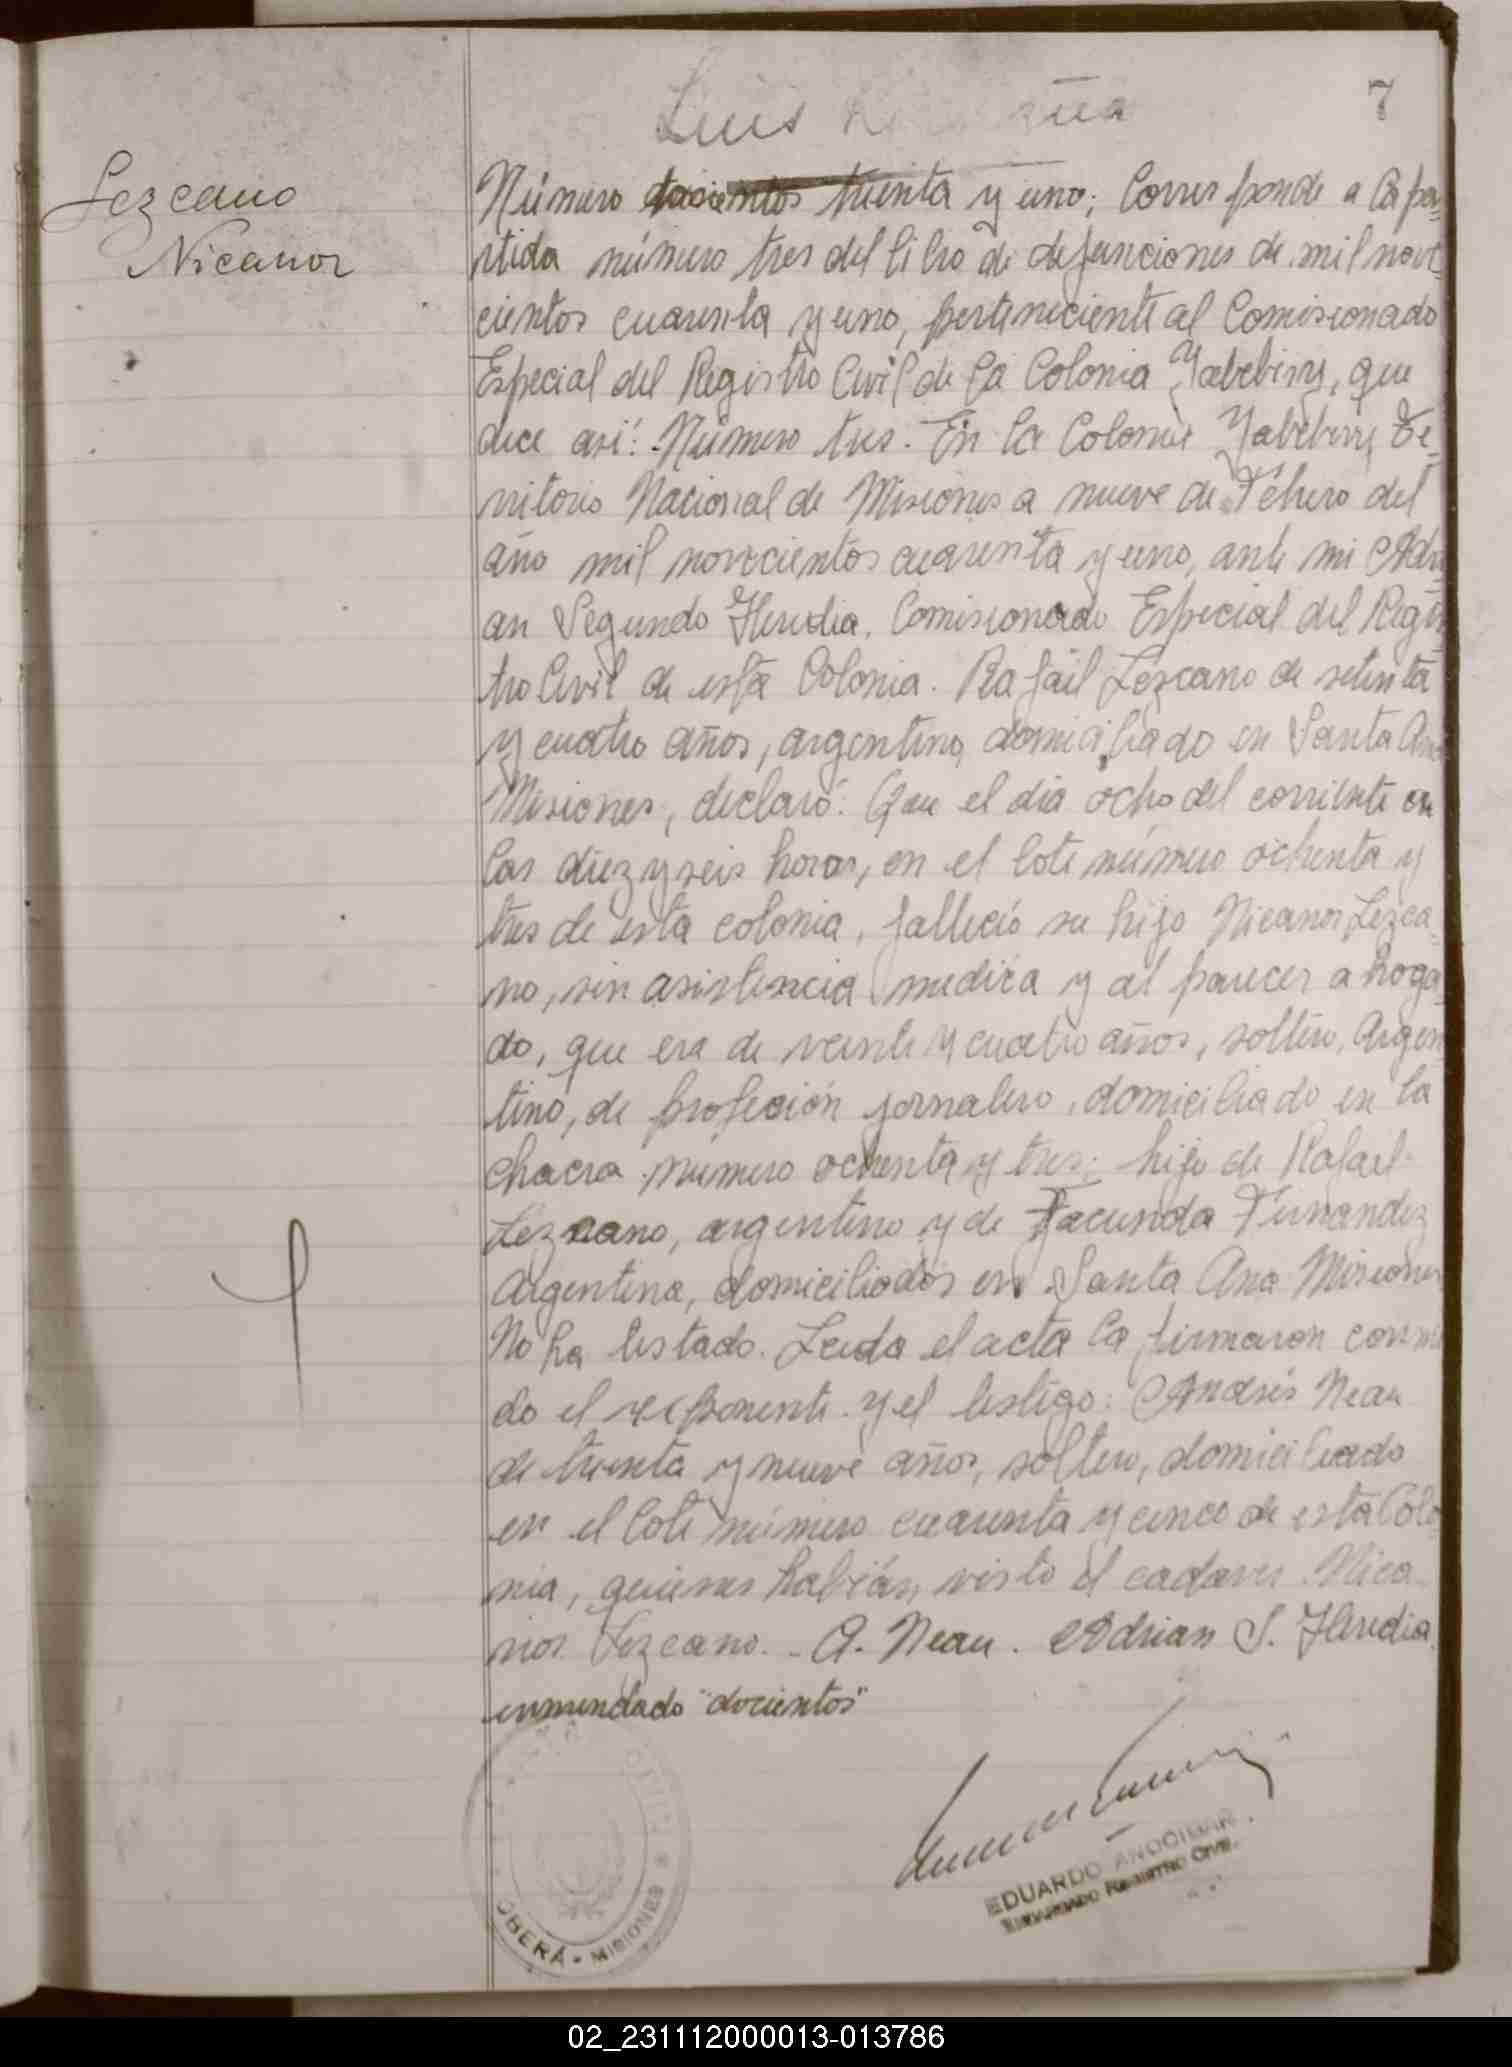 Luis
7
Lezcano
Nicanor
Número docientos treinta y uno; Corresponde a la pa-
rtida número tres del libro de defunciones de mil nove
cientos cuarenta y uno, perteneciente al Comisionado
Especial del Registro Civil de la Colonia Yabebiry, que
dice asi: Número tres. En la Colonia Yabebiry, Te-
rritorio Nacional de Misiones a nueve de Febrero del
año mil novecientos cuarenta y uno, ante mi Adri
an Segundo Heredia, Comisionado Especial del Regis
tro Civil de esta Colonia. Rafael Lezcano de setenta
y cuatro años, argentino, domiciliado en Santa Ana
Misiones, declaró: Que el dia ocho del corriente a
las diez y seis horas, en el lote número ochenta y
tres de esta colonia, falleció su hijo Nicanor Lezca-
no, sin asistencia medica y al parecer ahoga-
do, que era de veinte y cuatro años, soltero, Argen
tino, de profeción jornalero, domiciliado en la
chacra numero ochenta y tres; hijo de Rafael
Lezcano, argentino y de Facunda Fernandez
Argentina, domiciliados en Santa Ana Misiones
No ha testado. Leida el acta la firmaron conmi
do el exponente y el testigo: Andrés Neau
de treinta y nueve años, soltero, domiciliado
en el lote número cuarenta y cinco de esta Colo
nia, quienes habián visto el cadaver. Nica-
nor Lezcano. - A. Neau. Adrian S. Heredia.
enmendado "docientos"
OBERÁ - MISIONES
EDUARDO ANOCIBAR
ENCARGADO REGISTRO CIVIL
02_231112000013-013786